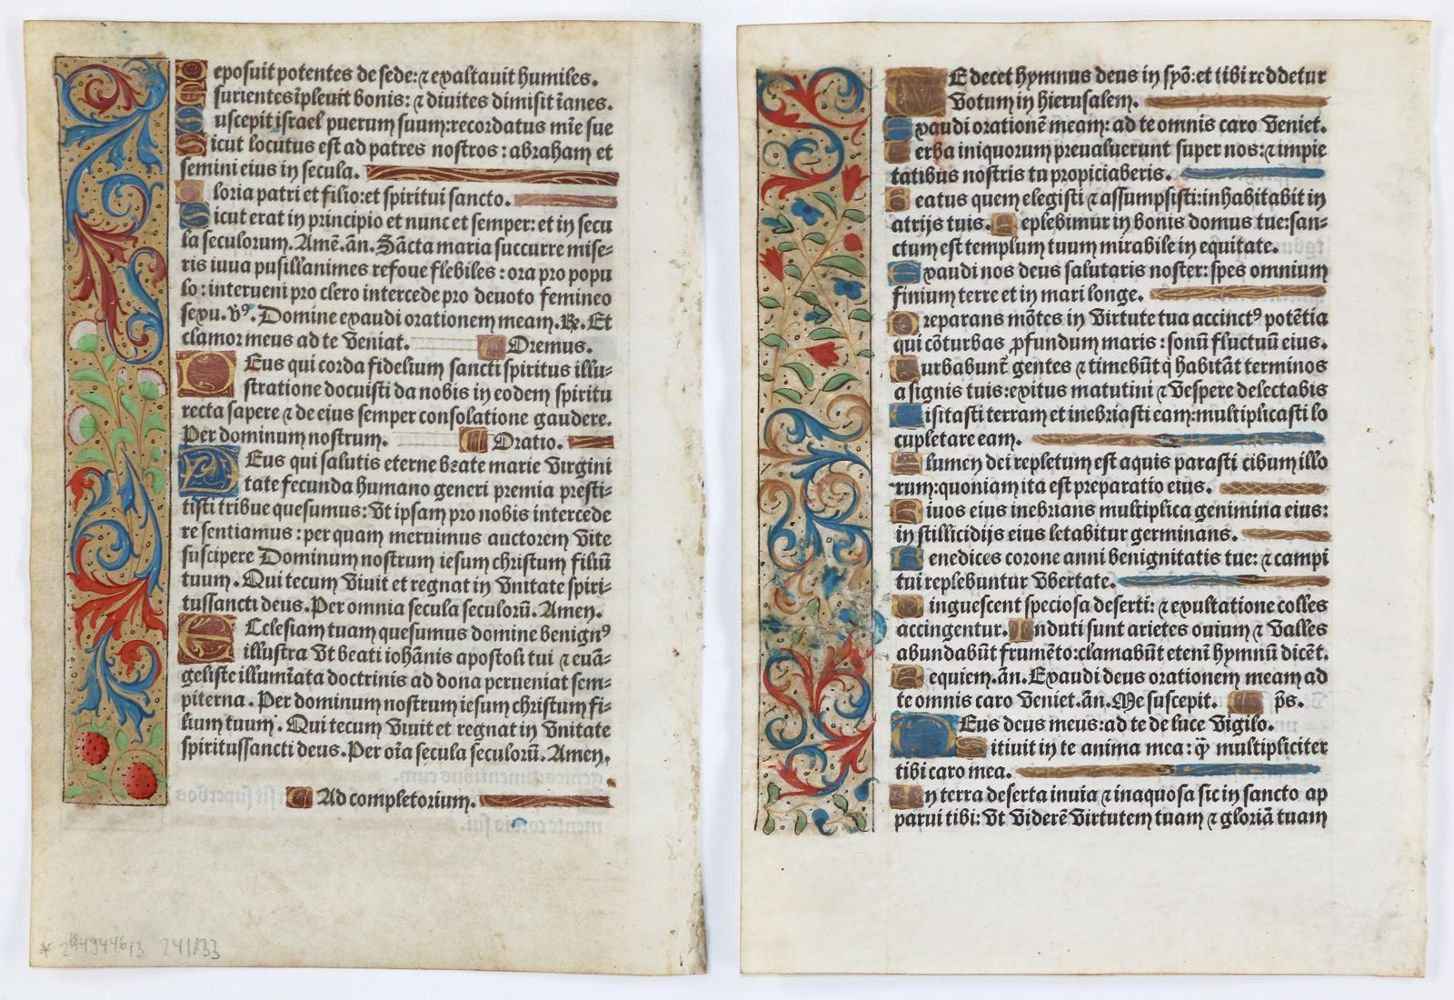 Deposuit potentes de sede: ⁊ exaltauit humiles.
Esurientes īpleuit bonis: ⁊ diuites dimisit īanes.
Suscepit israel puerum suum: recordatus mīe sue
Sicut locutus est ad patres nostros: abraham et
semini eius in secula.
Gloria patri et filio: et spiritui sancto.
Sicut erat in principio et nunc et semper: et in secu
la seculorum. Amē. añ. Sācta maria succurre mise-
ris iuua pusillanimes refoue flebiles: ora pro popu
lo: interueni pro clero intercede pro deuoto femineo
sexu. ꝟꝰ. Domine exaudi orationem meam. ℞. Et
clamor meus ad te veniat. Oremus.
DEus qui corda fidelium sancti spiritus illu-
stratione docuisti da nobis in eodem spiritu
recta sapere ⁊ de eius semper consolatione gaudere.
Per dominum nostrum. Oratio.
DEus qui salutis eterne beate marie virgini
tate fecunda humano generi premia presti-
tisti tribue quesumus: vt ipsam pro nobis intercede
re sentiamus: per quam meruimus auctorem vite
suscipere Dominum nostrum iesum christum filiū
tuum. Qui tecum viuit et regnat in vnitate spiri-
tussancti deus. Per omnia secula seculorū. Amen.
ECclesiam tuam quesumus domine benignꝰ
illustra vt beati iohānis apostoli tui ⁊ euā-
geliste illumīata doctrinis ad dona perueniat sem-
piterna. Per dominum nostrum iesum christum fi-
lium tuum. Qui tecum viuit et regnat in vnitate
spiritussancti deus. Per oīa secula seculorū. Amen.
Ad completorium.
241133
TE decet hymnus deus in syō: et tibi reddetur
votum in hierusalem.
Exaudi orationē meam: ad te omnis caro veniet.
Verba iniquorum preualuerunt super nos: ⁊ impie
tatibus nostris tu propiciaberis.
Beatus quem elegisti ⁊ assumpsisti: inhabitabit in
atrijs tuis. Replebimur in bonis domus tue: san-
ctum est templum tuum mirabile in equitate.
Exaudi nos deus salutaris noster: spes omnium
finium terre et in mari longe.
Preparans mōtes in virtute tua accinctꝰ potētia
qui cōturbas ꝓfundum maris: sonū fluctuū eius.
Turbabunt̄ gentes ⁊ timebūt q̇ habitāt terminos
a signis tuis: exitus matutini ⁊ vespere delectabis
Uisitasti terram et inebriasti eam: multiplicasti lo
cupletare eam.
Flumen dei repletum est aquis parasti cibum illo
rum: quoniam ita est preparatio eius.
Riuos eius inebrians multiplica genimina eius:
in stillicidijs eius letabitur germinans.
Benedices corone anni benignitatis tue: ⁊ campi
tui replebuntur vbertate.
Pinguescent speciosa deserti: ⁊ exultatione colles
accingentur. Induti sunt arietes ouium ⁊ valles
abundabūt frumēto: clamabūt etenī hymnū dicēt.
Requiem. añ. Exaudi deus orationem meam ad
te omnis caro veniet. añ. Me suscepit. p̄s.
DEus deus meus: ad te de luce vigilo.
Sitiuit in te anima mea: q̄ȝ multipliciter
tibi caro mea.
In terra deserta inuia ⁊ inaquosa sic in sancto ap
parui tibi: vt viderē virtutem tuam ⁊ gloriā tuam